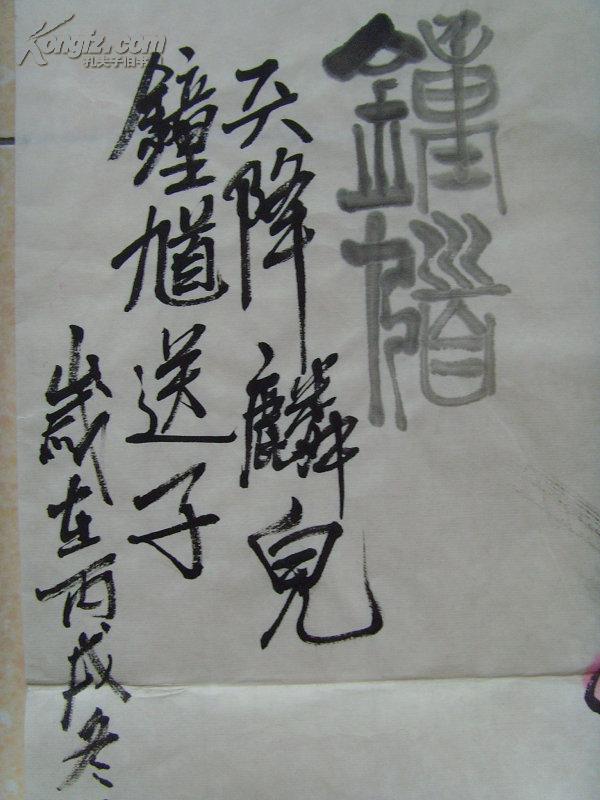 鍾馗
天降麟兒
鐘馗送子
歲在丙戌冬
Kongfz.com
孔夫子旧书网